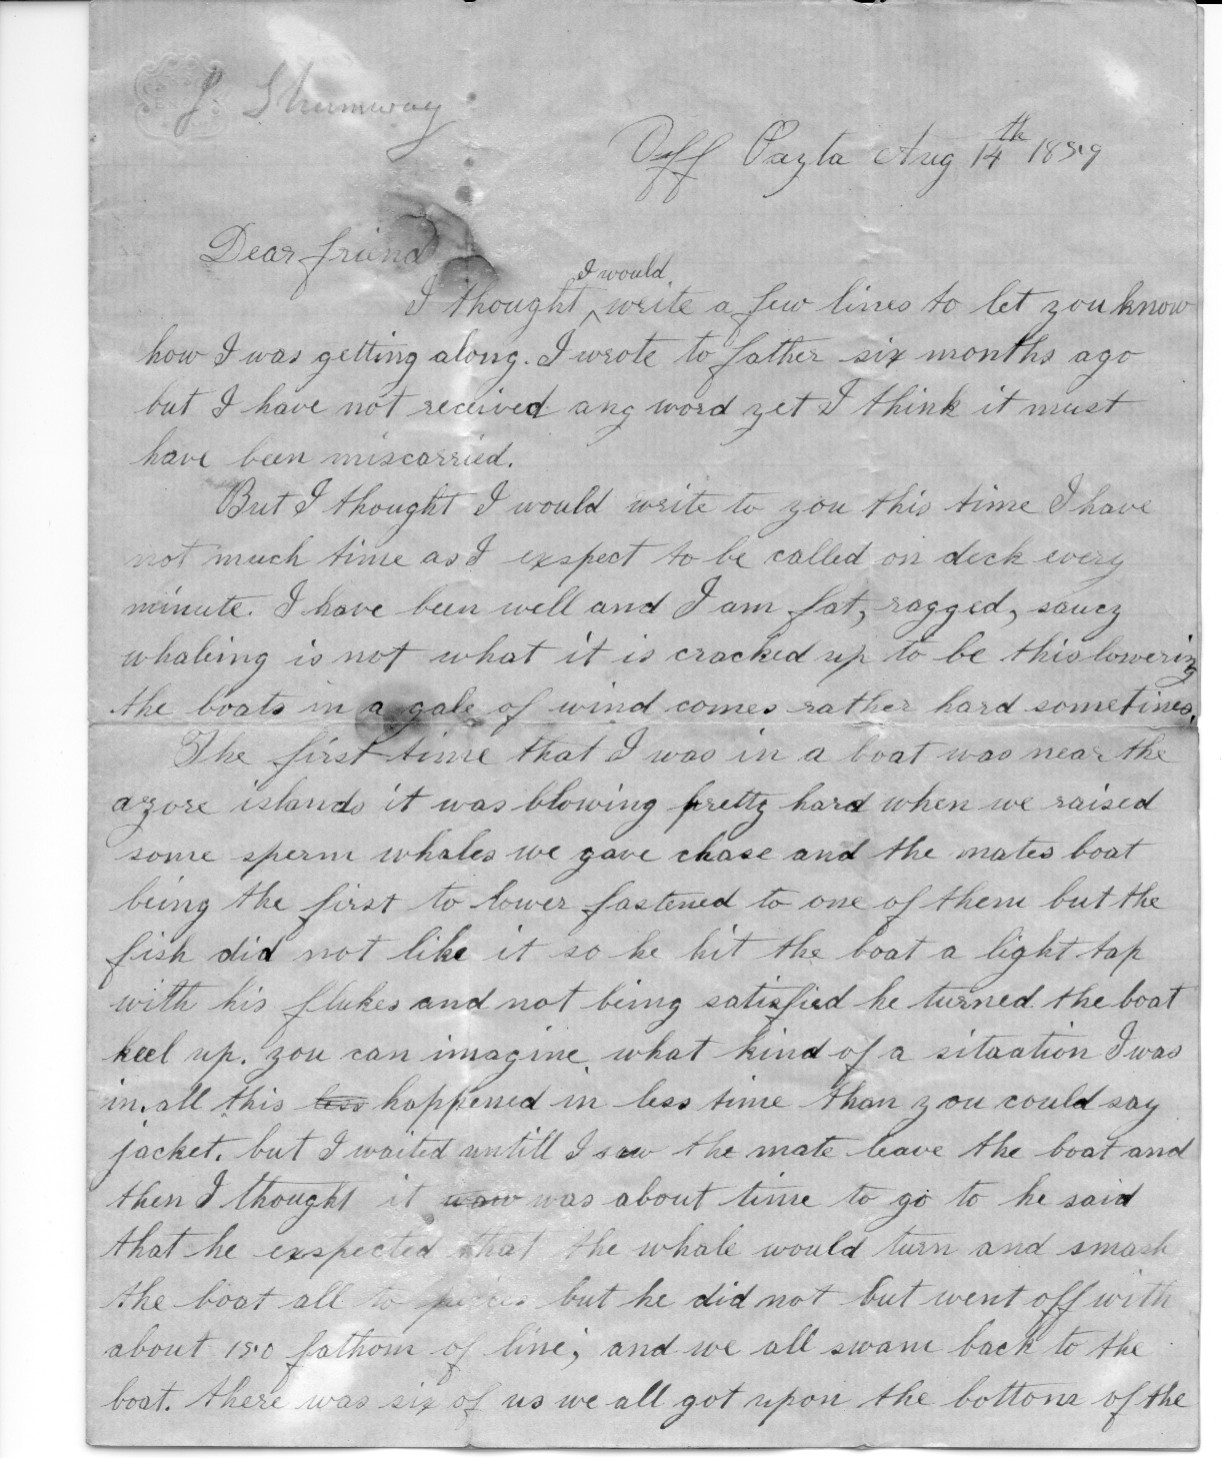 J. Shumway
Off Payta Aug 14th 1859
Dear friend
I would
I thought ^ write a few lines to let you know
how I was getting along. I wrote to father six months ago
but I have not received any word yet I think it must
have been miscarried.
But I thought I would write to you this time I have
not much time as I exspect to be called on deck every
minute. I have been well and I am fat, ragged, saucy
whaleing is not what it is cracked up to be this lowering
the boats in a gale of wind comes rather hard sometimes.
The first time that I was in a boat was near the
azore islands it was blowing pretty hard when we raised
some sperm whales we gave chase and the mates boat
being the first to lower fastened to one of them but the
fish did not like it so he hit the boat a light tap
with his flukes and not being satisfied he turned the boat
keel up. you can imagine what kind of a sitaation I was
in. all this less happened in less time than you could say
jacket. but I waited untill I saw the mate leave the boat and
then I thought it waw was about time to go to he said
that he exspected that the whale would turn and smash
the boat all to peices but he did not but went off with
about 150 fathom of line; and we all swam back to the
boat. there was six of us we all got upon the bottom of the